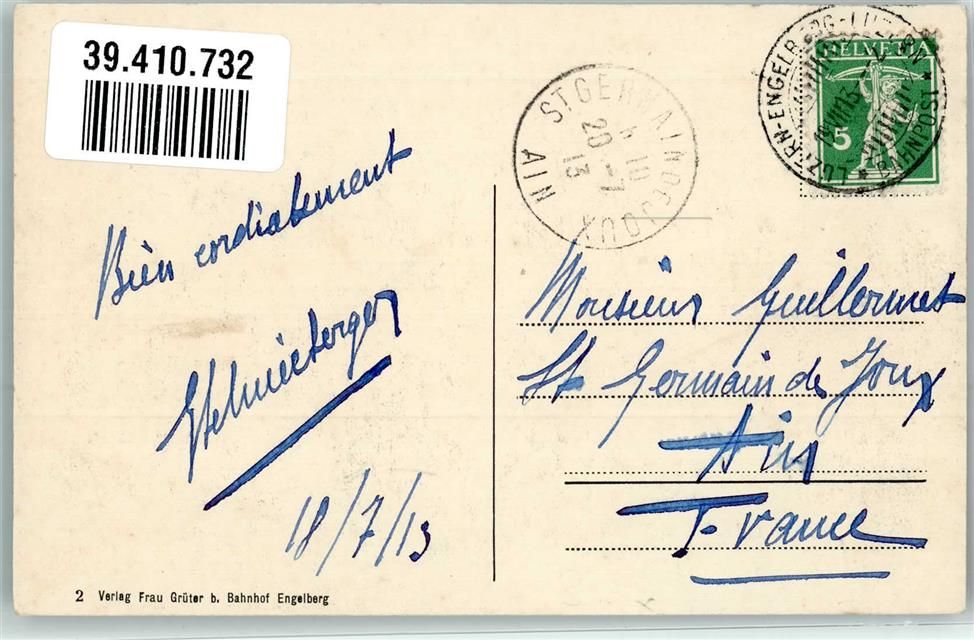 39.410.732
HELVETIA
5
LUZERN-ENGELBERG-LUZERN
BAHNPOST
ST GERMAIN DE JOUX
20 -7
13
AIN
Bien cordialement
18/7/13
Monsieur Guillermet
St Germain de Joux
Ain
France
2 Verlag Frau Grüter b. Bahnhof Engelberg